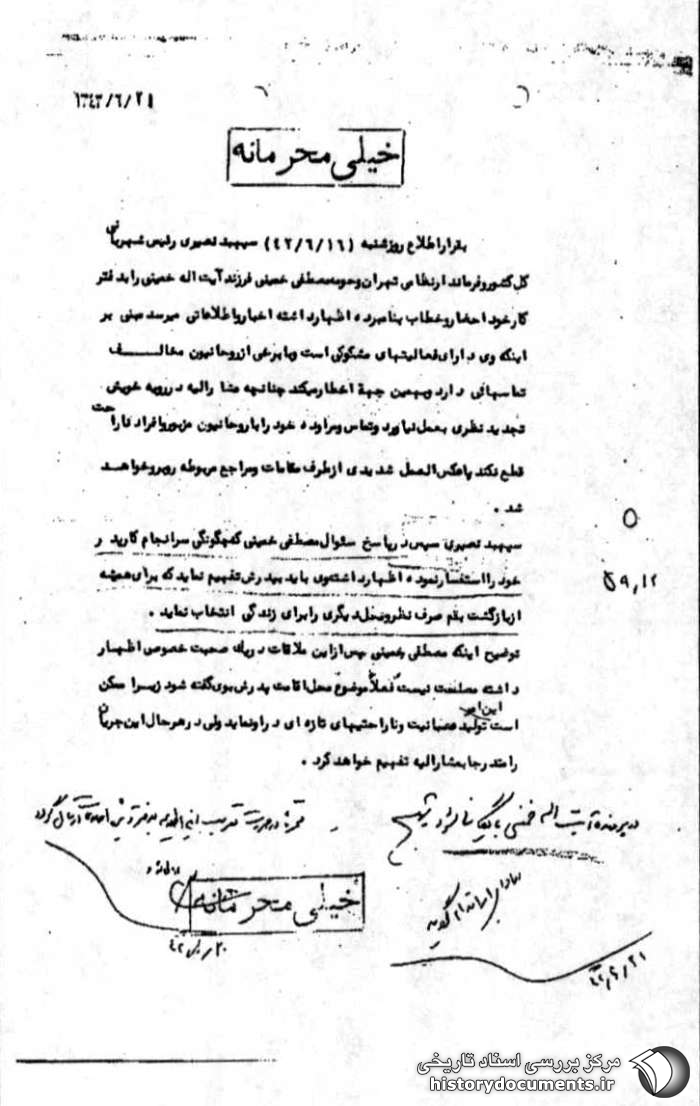 ۱۳۴۲/۶/۲۱
خیلی محرمانه
بقرار اطلاع روز شنبه (۴۲/۶/۱۶) سپهبد نصیری رئیس شهربانی
کل کشور و فرماندار نظامی تهران و حومه مصطفی خمینی فرزند آیت اله خمینی را بدفتر
کار خود احضار و خطاب بنامبرده اظهار داشته اخبار و اطلاعاتی میرسد مبنی بر
اینکه وی دارای فعالیتهای مشکوکی است و با برخی از روحانیون مخالف
تماسهائی دارد و بهمین جهة اخطار میکند چنانچه مشارالیه در رویه خویش
تجدید نظری بعمل نیاورد و تماس و مراوده خود را با روحانیون مزبور و افراد ناراحت
قطع نکند با عکس العمل شدیدی از طرف مقامات و مراجع مربوطه روبرو خواهد
شد .
سپهبد نصیری سپس در پاسخ سئوال مصطفی خمینی که چگونگی سرانجام کار پدر
خود را استفسار نموده اظهار داشته وی باید بپدرش تفهیم نماید که برای همیشه
از بازگشت بقم صرف نظر و محل دیگری را برای زندگی انتخاب نماید .
توضیح اینکه مصطفی خمینی پس از این ملاقات در یک صحبت خصوصی اظهار
داشته مصلحت نیست فعلاً موضوع محل اقامت پدرش بوی گفته شود زیرا ممکن
است این امر تولید عصبانیت و ناراحتیهای تازه ای در او نماید ولی در هر حال این جریان
را متدرجا بمشارالیه تفهیم خواهد کرد .
۵۹,۱۲
در پرونده آیت اله خمینی بایگانی شود
خیلی محرمانه
۴۲/۶/۲۰
۴۲/۶/۲۱
مرکز بررسی اسناد تاریخی
historydocuments.ir